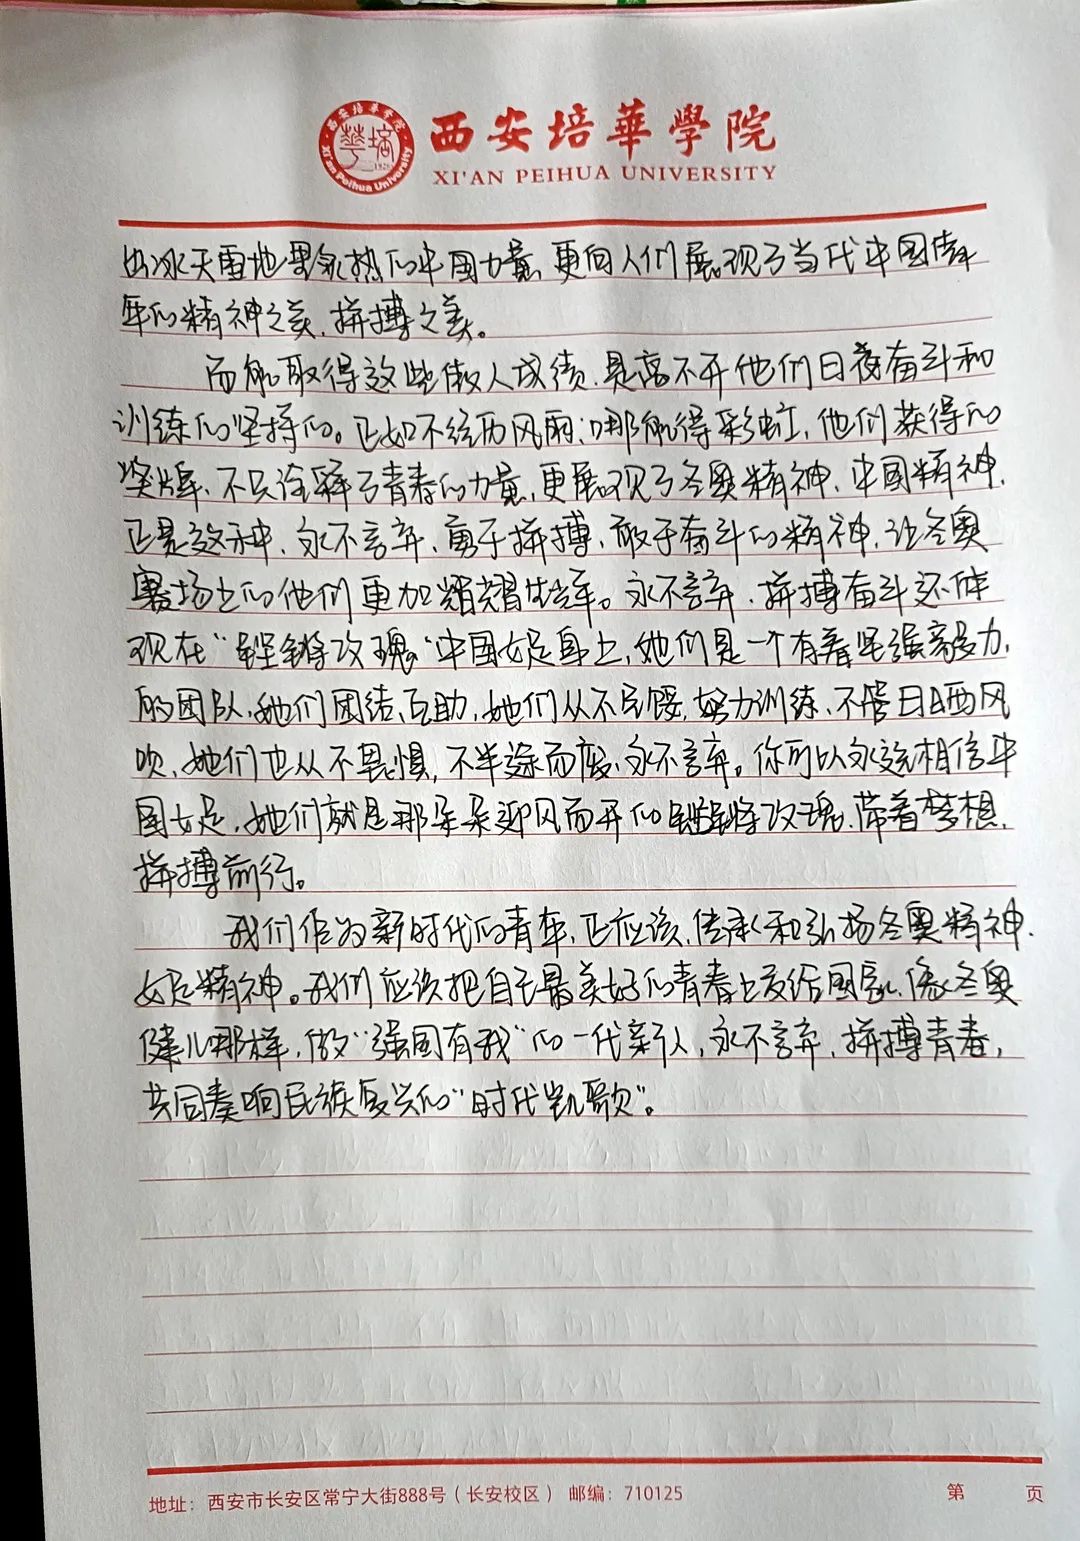 西安培華學院
XI'AN PEIHUA UNIVERSITY
西安培華學院
Xi'an Peihua University
1928
出冰天雪地里最热的中国力量,更向人们展现了当代中国青
年的精神之美,拼搏之美。
而能取得这些傲人成绩,是离不开他们日夜奋斗和
训练的坚持的。正如不经历风雨,哪能得彩虹,他们获得的
奖牌,不只诠释了青春的力量,更展现了冬奥精神,中国精神,
正是这种,永不言弃,勇于拼搏,敢于奋斗的精神,让冬奥
赛场上的他们更加耀耀生辉。永不言弃,拼搏奋斗还体
现在"铿锵玫瑰"中国女足身上,她们是一个有着坚强毅力,
的团队,她们团结互助,她们从不气馁,努力训练,不管日晒风
吹,她们也从不畏惧,不半途而废,永不言弃。你可以永远相信中
国女足,她们就是那朵朵迎风而开的铿锵玫瑰,带着梦想,
拼搏前行。
我们作为新时代的青年,正应该,传承和弘扬冬奥精神,
女足精神。我们应该把自己最美好的青春上交给国家,像冬奥
健儿那样,做"强国有我"的一代新人,永不言弃,拼搏青春,
共同奏响民族复兴的"时代凯歌"。
地址:西安市长安区常宁大街888号(长安校区) 邮编:710125 第 页